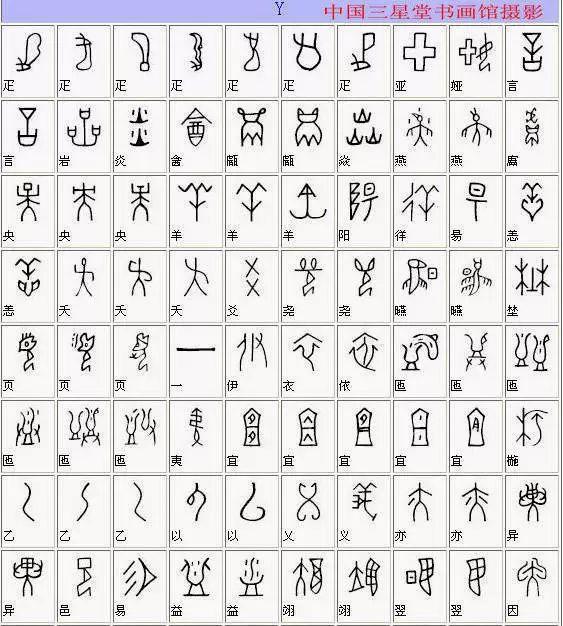 Y 中国三星堂书画馆摄影
疋 疋 疋 疋 疋 疋 疋 亚 娅 言
言 岩 炎 會 燕 燕
央 央 央 羊 羊 羊 阳 徉 易 恙
恙 夭 夭 夭 爻 尧 尧
页 页 页 一 伊 衣 依
夷 宜 宜 宜 宜 宜 椸
乙 乙 乙 以 以 乂 义 亦 亦 异
异 邑 易 益 益 翊 翊 翌 翌 因